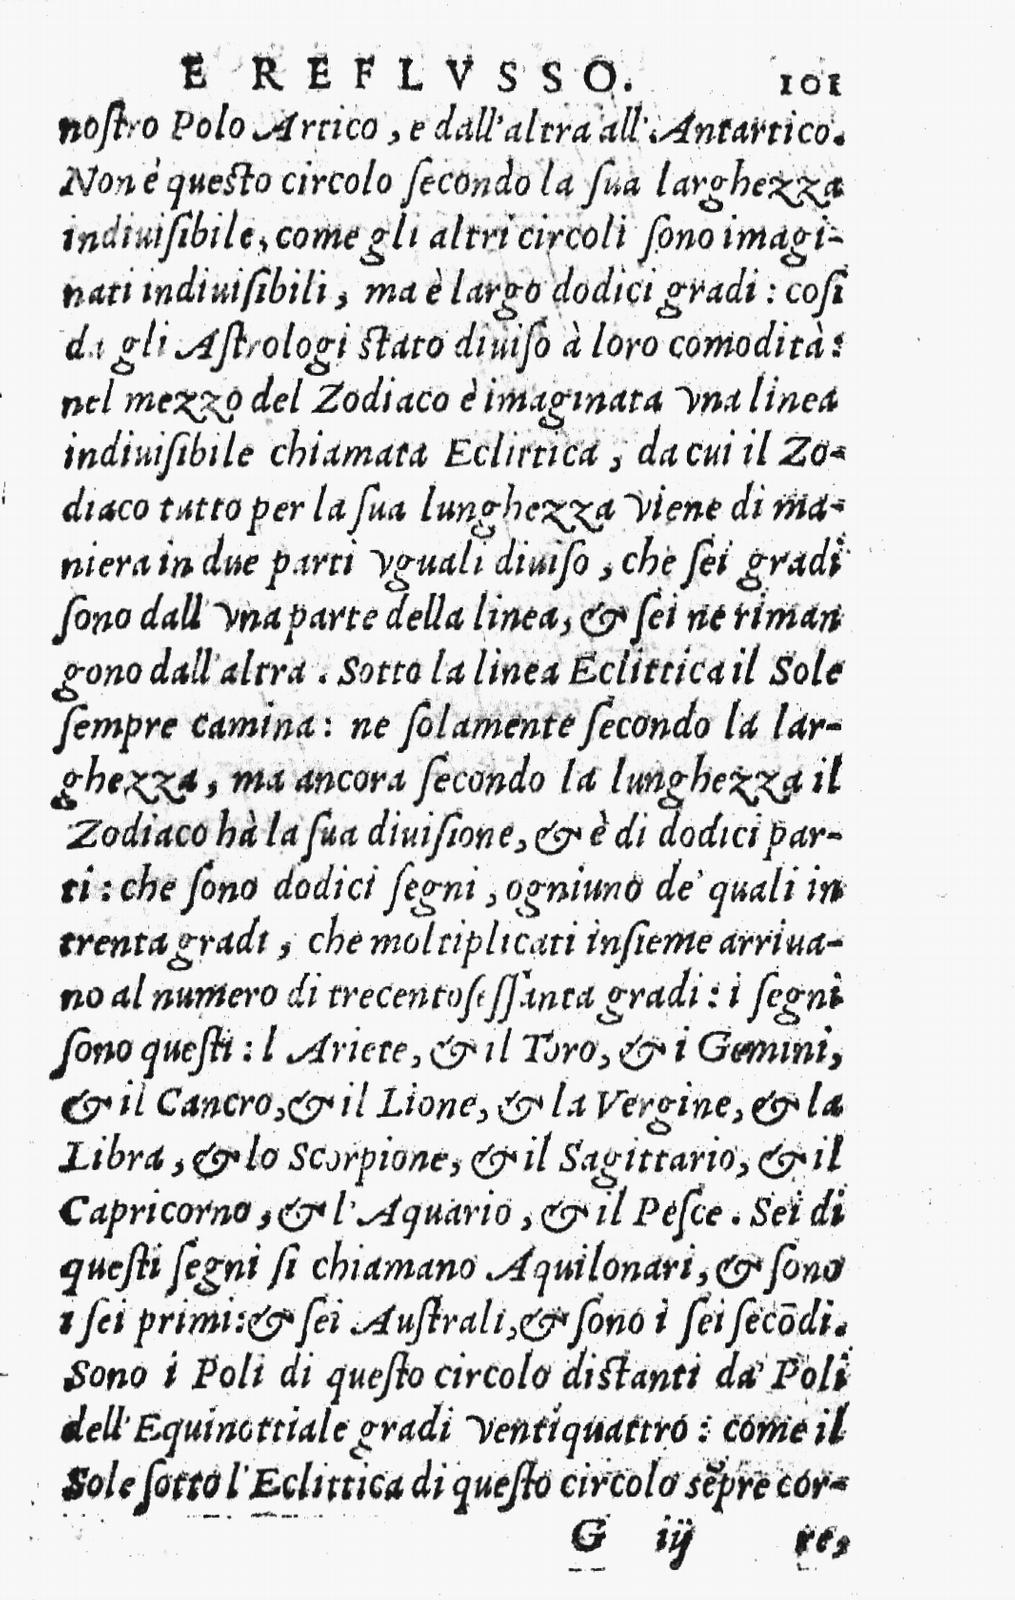 E REFLVSSO. 101
noſtro Polo Artico, e dall'altra all'Antartico.
Non è queſto circolo ſecondo la ſua larghezza
indiuiſibile, come gli altri circoli ſono imagi-
nati indiuiſibili, ma è largo dodici gradi: coſi
da gli Aſtrologi ſtato diuiſo à loro comodità:
nel mezzo del Zodiaco è imaginata vna linea
indiuiſibile chiamata Eclittica, da cui il Zo-
diaco tutto per la ſua lunghezza viene di ma-
niera in due parti vguali diuiſo, che ſei gradi
ſono dall'vna parte della linea, & ſei ne riman
gono dall'altra. Sotto la linea Eclittica il Sole
ſempre camina: ne ſolamente ſecondo la lar-
ghezza, ma ancora ſecondo la lunghezza il
Zodiaco hà la ſua diuiſione, & è di dodici par-
ti: che ſono dodici ſegni, ogniuno de' quali in
trenta gradi, che moltiplicati inſieme arriua-
no al numero di trecentoſeſſanta gradi: i ſegni
ſono queſti: l'Ariete, & il Toro, & i Gemini,
& il Cancro, & il Lione, & la Vergine, & la
Libra, & lo Scorpione, & il Sagittario, & il
Capricorno, & l'Aquario, & il Peſce. Sei di
queſti ſegni ſi chiamano Aquilonari, & ſono
i ſei primi: & ſei Auſtrali, & ſono i ſei ſecōdi.
Sono i Poli di queſto circolo diſtanti da' Poli
dell'Equinottiale gradi ventiquattro: come il
Sole ſotto l'Eclittica di queſto circolo sēpre cor-
G iij re,